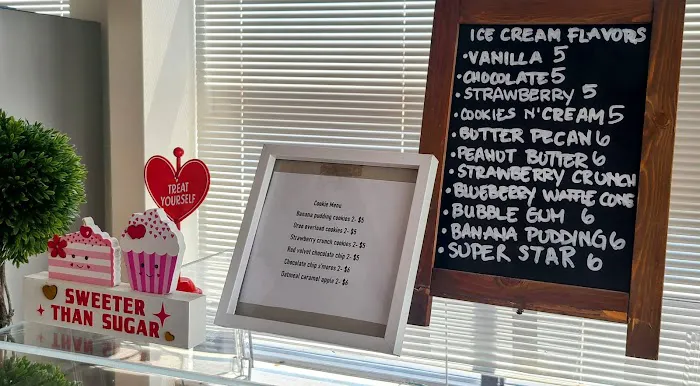 TREAT
YOURSELF
SWEETER
THAN SUGAR
Cookie Menu
Banana pudding cookies 2- $5
Oreo overload cookies 2- $5
Strawberry crunch cookies 2- $5
Red velvet chocolate chip 2- $5
Chocolate chip s'mores 2- $6
Oatmeal caramel apple 2- $6
ICE CREAM FLAVORS
•VANILLA 5
•CHOCOLATE 5
•STRAWBERRY 5
•COOKIES N' CREAM 5
•BUTTER PECAN 6
•PEANUT BUTTER 6
•STRAWBERRY CRUNCH
•BLUEBERRY WAFFLE CONE
•BUBBLE GUM 6
•BANANA PUDDING 6
•SUPER STAR 6